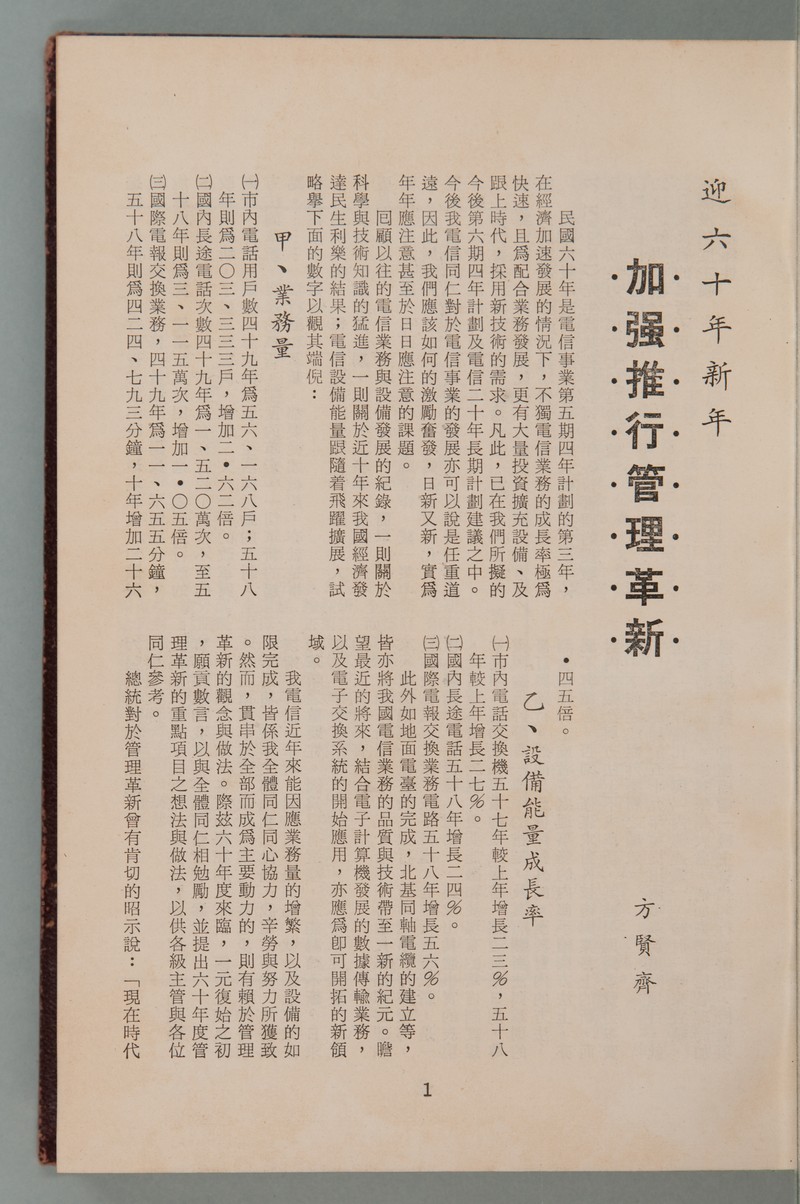 迎六十年新年
·加·强·推·行·管·理·革·新·
方賢齊
民國六十年是電信事業第五期四年計劃的第三年，
在經濟加速發展的情況下，不獨電信業務的成長率極爲
快速，且爲配合業務發展，更有大量投資擴充設備、及
跟上時代，採用新技術的需求。凡此，已在我們所擬的
今後第六期四年計劃及電信二十年長期計劃建議之中。
今後我電信同仁對於電信事業的發展亦可以說是任重道
遠，因此，我們應該如何的激勵奮發，日新又新，實爲
年年應注意甚至於日日應注意的課題。
囘顧以往的電信業務與設備發展的紀錄，一則關於
科學與技術知識的猛進，一則關於近十年來我國經濟發
達民生利樂的結果；電信設備能量跟隨着飛躍擴展，試
略舉下面的數字以觀其端倪：
甲、業務量
㈠市內電話用戶數四十九年爲五六、一六八戶；五十八
年則爲二〇三、三三三戶，增加二•六二倍。
㈡國內長途電話次數四十九年爲一、五二〇萬次，至五
十八年則爲三、一一五萬次，增加一•〇五倍。
㈢國際電報交換業務，四十九年爲一一、六五五分鐘，
五十八年則爲四二四、七九三分鐘，十年增加二十六
•四五倍。
乙、設備能量成長率
㈠市內電話交換機五十七年較上年增長二三％，五十八
年較上年增長二七％。
㈡國內長途電話五十八年增長二四％。
㈢國際電報交換業務電路五十八年增長五六％。
此外如地面電臺的完成，北基同軸電纜的建立等，
皆亦將我國電信業務的品質與技術帶至一新的紀元。瞻
望最近的將來，結合電子計算機發展的數據傳輸業務，
以及電子交換系統的開始應用，亦應爲卽可開拓的新領
域。
我電信近年來能因應業務量的增繁，以及設備的如
限完成，皆係我全體同仁同心協力，辛勞與努力所獲致
。然而，貫串於全部而成爲主要動力的，則有賴於管理
革新的觀念與做法。際茲六十年度來臨，一元復始之初
，願貢數言，以與全體同仁相勉勵，並提出六十年度管
理革新的重點項目之想法與做法，以供各級主管與各位
同仁參考。
總統對於管理革新曾有肯切的昭示說：「現在時代
1